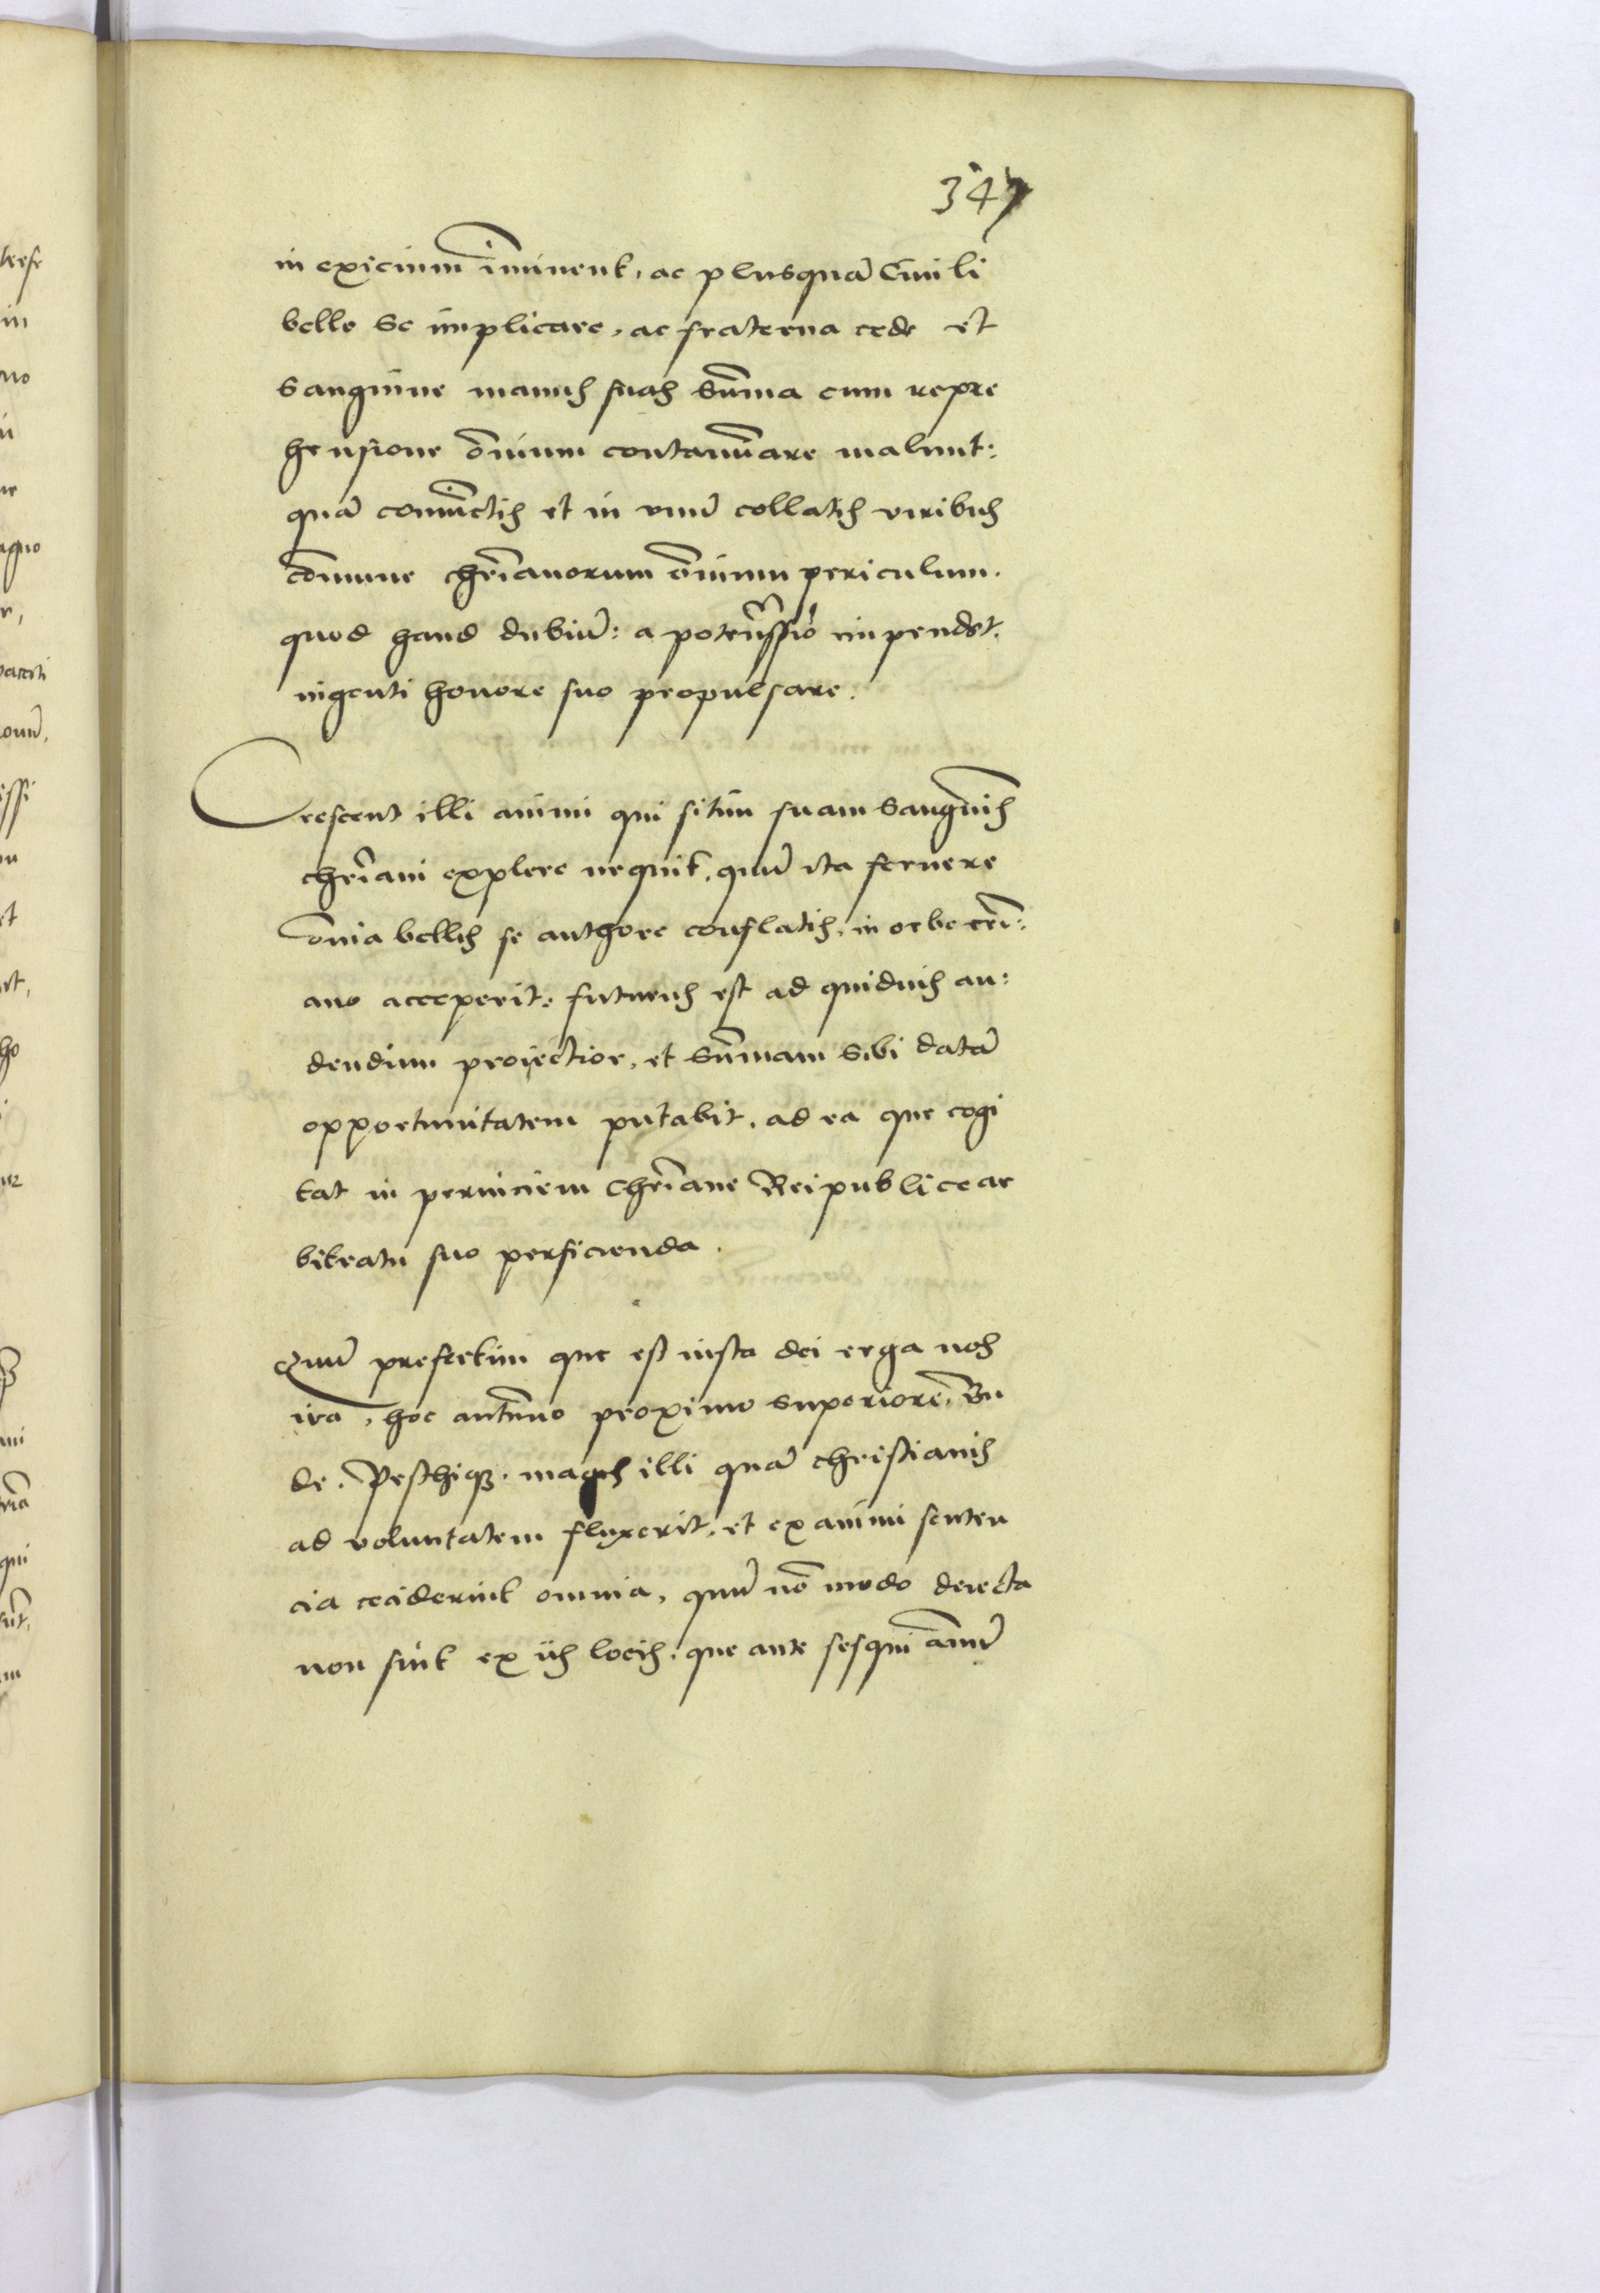 347
in exicium im̄inent, ac plusquā Ciuili
bello se implicare, ac fraterna cede et
sanguine manus suas sum̄a cum repre
hensione om̄ium contaminare malunt:
quā coniunctis et in vnū collatis viribus
com̄une chrīanorum om̄ium periculum.
quod haud dubiū: a impendet.
ingenti honore suo propulsare.
Crescent illi animi qui sitim suam sanguinis
chrīani explere nequit, quū ita feruere
om̄ia bellis se authore conflatis, in orbe crī:
ano acceperit: futurus est ad quiduis au:
dendum proiectior, et sum̄am sibi datā
opportunitatem putabit, ad ea que cogi
tat in perniciem Chrīane Reipublice ar
bitratu suo perficienda.
Quū presertim que est iusta dei erga nos
ira, hoc autūno proximo superiore, Bu
de. Pesthiq3. magis illi quā christianis
ad voluntatem fluxerit, et ex animi senten
cia ceciderint omnia, quū nō modo deiecta
non sint ex iis locis, que ante sesqui annū